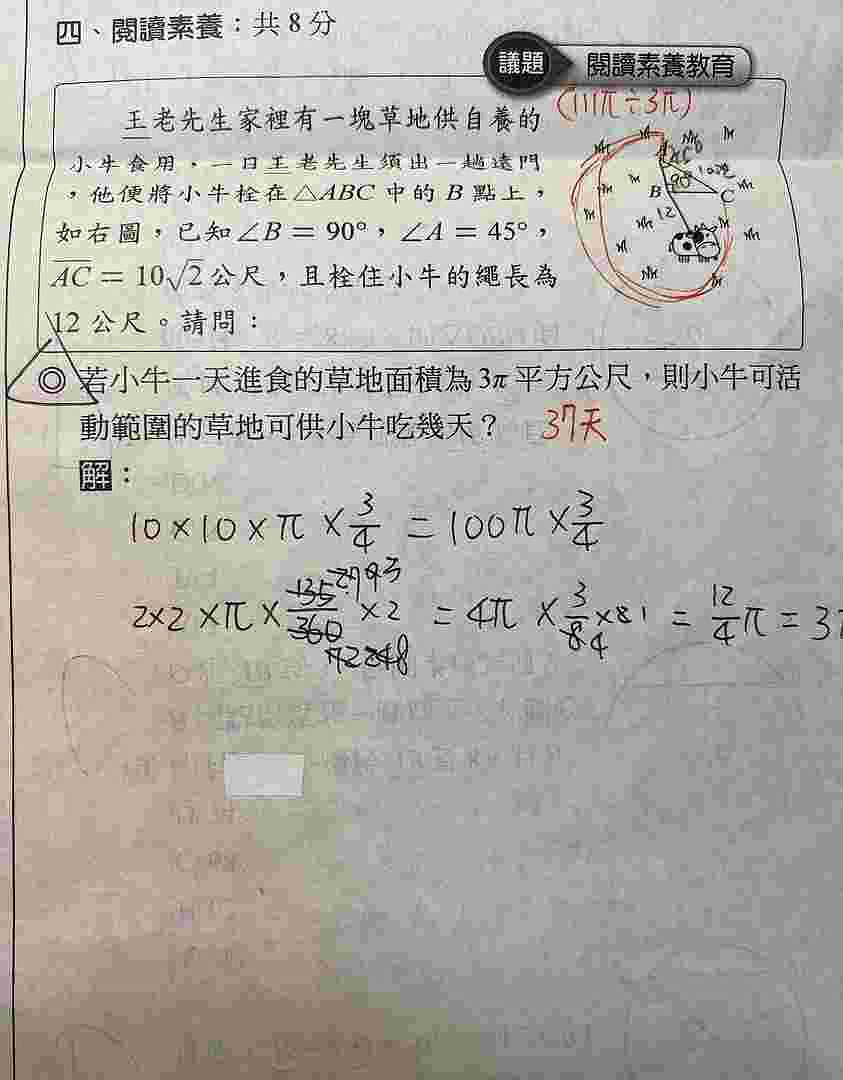 四、閱讀素養：共8分
議題 閱讀素養教育
王老先生家裡有一塊草地供自養的
(111π÷3π)
小牛食用，一日王老先生須出一趟遠門
，他便將小牛栓在△ABC 中的 B 點上，
如右圖，已知∠B = 90°，∠A = 45°，
AC = 10√2公尺，且栓住小牛的繩長為
12 公尺。請問：
A
B
C
12
◎ 若小牛一天進食的草地面積為3π平方公尺，則小牛可活
動範圍的草地可供小牛吃幾天？ 37天
解：
10×10×π×3/4 = 100π×3/4
2×2×π×135/360×2 = 4π×3/84×81 = 12/4π = 37